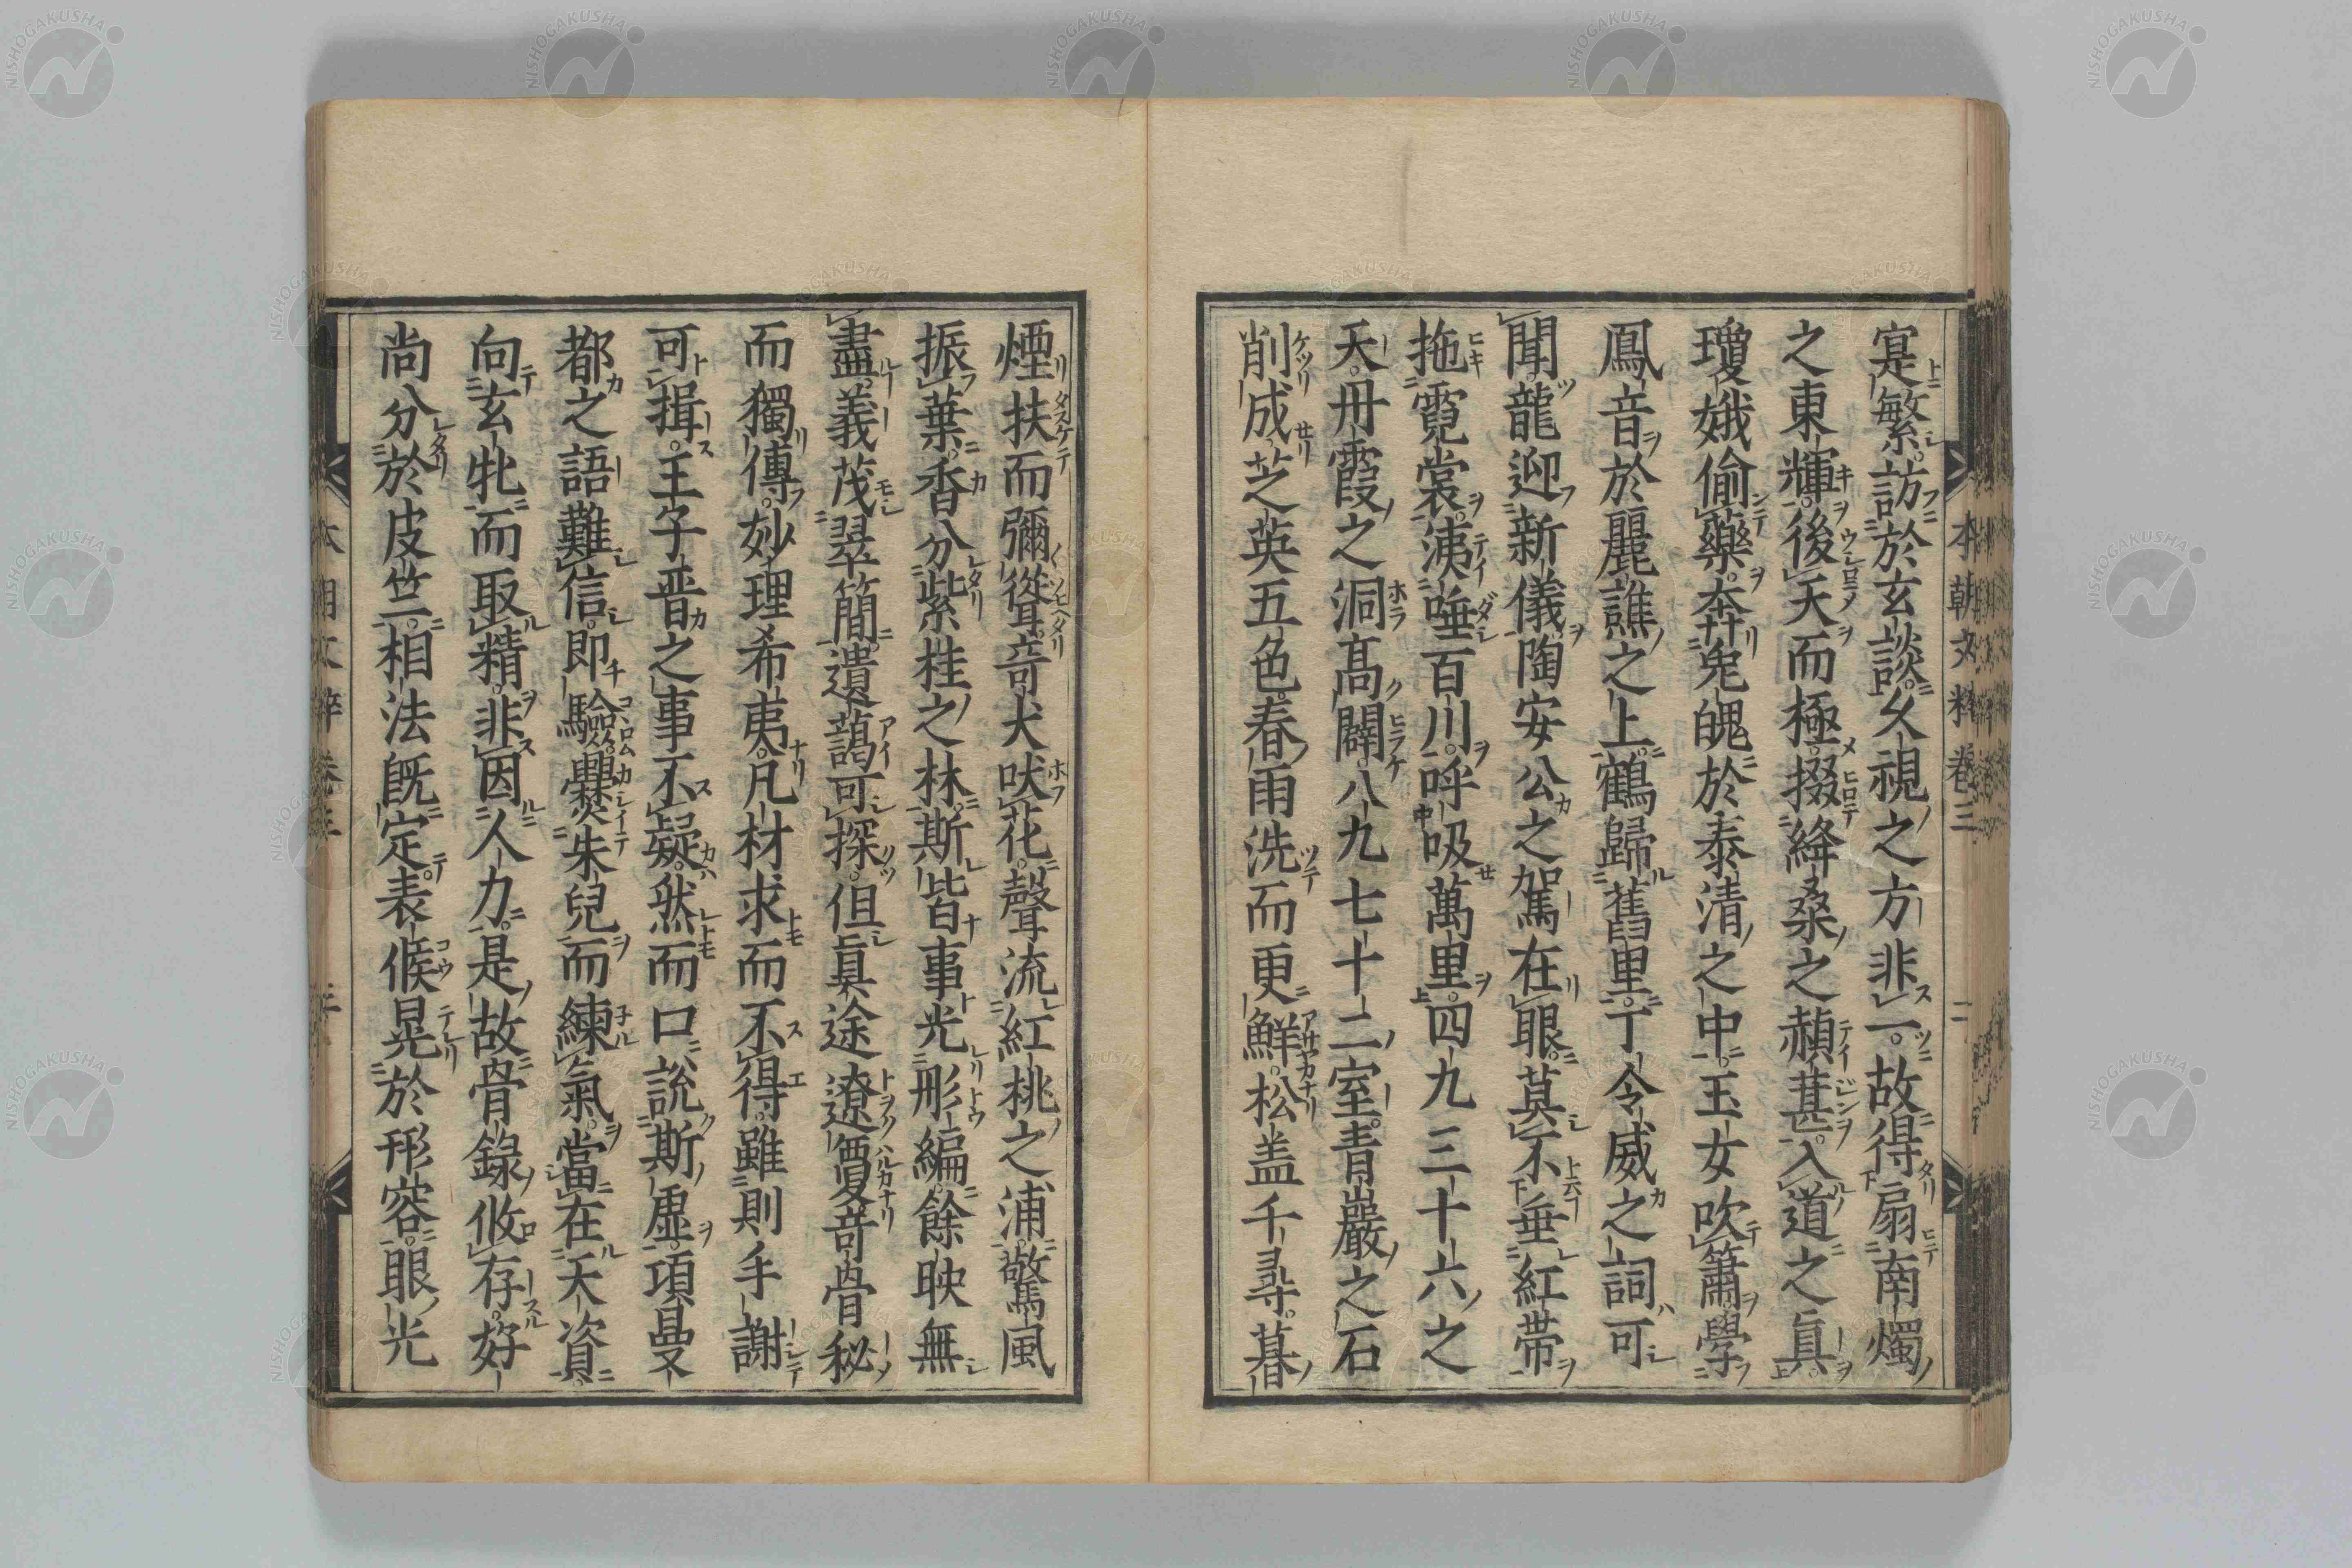 寔繁。訪於玄談。久視之方非一。故得扇南燭
之東輝。後天而極。掇絳桑之赬葚。入道之眞。
瓊娥偷藥。奔兎魄於泰清之中。玉女吹簫。學
鳳音於麗譙之上。鶴歸舊里。丁令威之詞可
聞。龍迎新儀。陶安公之駕在眼。莫不垂紅帶
拖霓裳。洟唾百川。呼吸萬里。四九三十六之
天。丹霞之洞高闢。八九七十二室。青巖之石
削成。芝英五色。春雨洗而更鮮。松盖千尋。暮
煙扶而彌聳。奇犬吠花。聲流紅桃之浦。驚風
振葉。香分紫桂之林。斯皆事光彤編。餘映無
盡。義茂翠簡。遺藹可探。但眞途遼敻。奇骨秘
而獨傳。妙理希夷。凡材求而不得。雖則手謝
可揖。王子晋之事不疑。然而口說斯虛。項曼
都之語難信。卽驗爨朱兒而練氣。當在天資。
向玄牝而取精。非因人力。是故骨錄攸存。好
尚分於皮竺。相法旣定。表候晃於形容。眼光
本朝文粹卷三
二
本朝文粹卷三
NISHOGAKUSHA